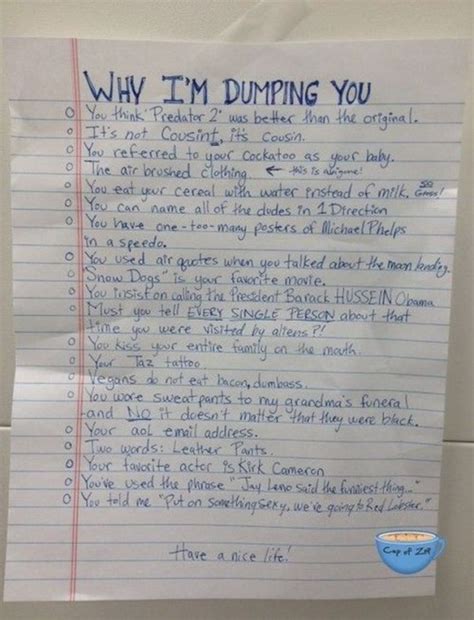 WHY I'M DUMPING YOU
o You think "Predator 2" was better than the original.
o It's not Cousint, it's cousin.
o You referred to your cockatoo as your baby.
o The air brushed clothing. ← this is a biggone!
o You eat your cereal with water instead of milk. SO Gross!
o You can name all of the dudes in 1 Direction
o You have one-too-many posters of Michael Phelps
in a speedo.
o You used air quotes when you talked about the moon landing.
o "Snow Dogs" is your favorite movie.
o You insist on calling the President Barack HUSSEIN Obama
o Must you tell EVERY SINGLE PERSON about that
time you were visited by aliens?!
o You kiss your entire family on the mouth.
o Your Taz tattoo.
o Vegans do not eat bacon, dumbass.
o You wore sweatpants to my grandma's funeral
and NO it doesn't matter that they were black.
o Your aol email address.
o Two words: Leather Pants.
o Your favorite actor is Kirk Cameron
o You've used the phrase "Jay Leno said the funniest thing..."
o You told me "Put on something sexy, we're going to Red Lobster."
Have a nice life!
Cup of Zo